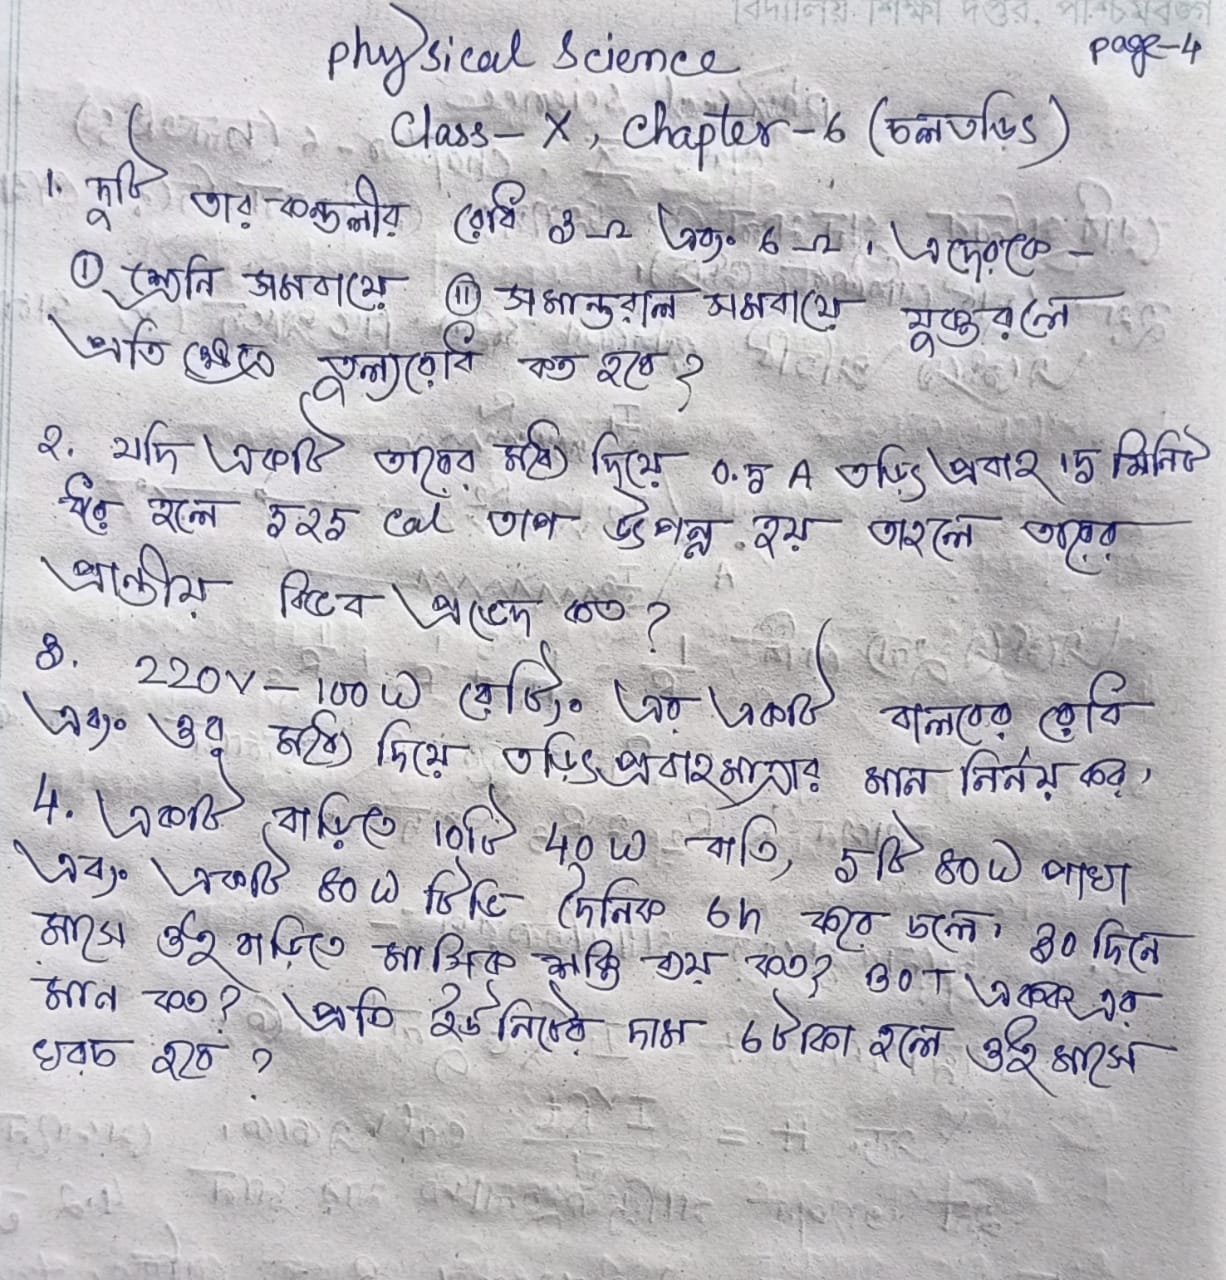 বিদ্যালয় শিক্ষা দপ্তর, পশ্চিমবঙ্গ
page-4
Physical Science
Class-X, Chapter-6 (চলতড়িৎ)
1. দুটি তার কুন্ডলীর রোধ 3Ω এবং 6Ω। এদেরকে -
(I) শ্রেনি সমবায়ে (II) সমান্তরাল সমবায়ে যুক্ত করলে
প্রতি ক্ষেত্রে তুল্যরোধ কত হবে?
২. যদি একটি তারের মধ্যে দিয়ে 0.5 A তড়িৎ প্রবাহ 15 মিনিট
ধরে হলে 525 cal তাপ উৎপন্ন হয় তাহলে তারের
প্রান্তীয় বিভব প্রভেদ কত?
3. 220V-100W রেটিং এর একটি বালবের রোধ
এবং ওর মধ্যে দিয়ে তড়িৎ প্রবাহমাত্রার মান নির্নয় কর,
4. একটি বাড়িতে 10টি 40W বাতি, 5টি 80W পাখা
এবং একটি 80W টিভি দৈনিক 6h করে চলে। 30 দিনে
মাসে ওই বাড়িতে মাসিক শক্তি ব্যয় কত? BOT এককে এর
মান কত? প্রতি ইউনিটের দাম 6 টাকা হলে ওই মাসে
খরচ হবে?